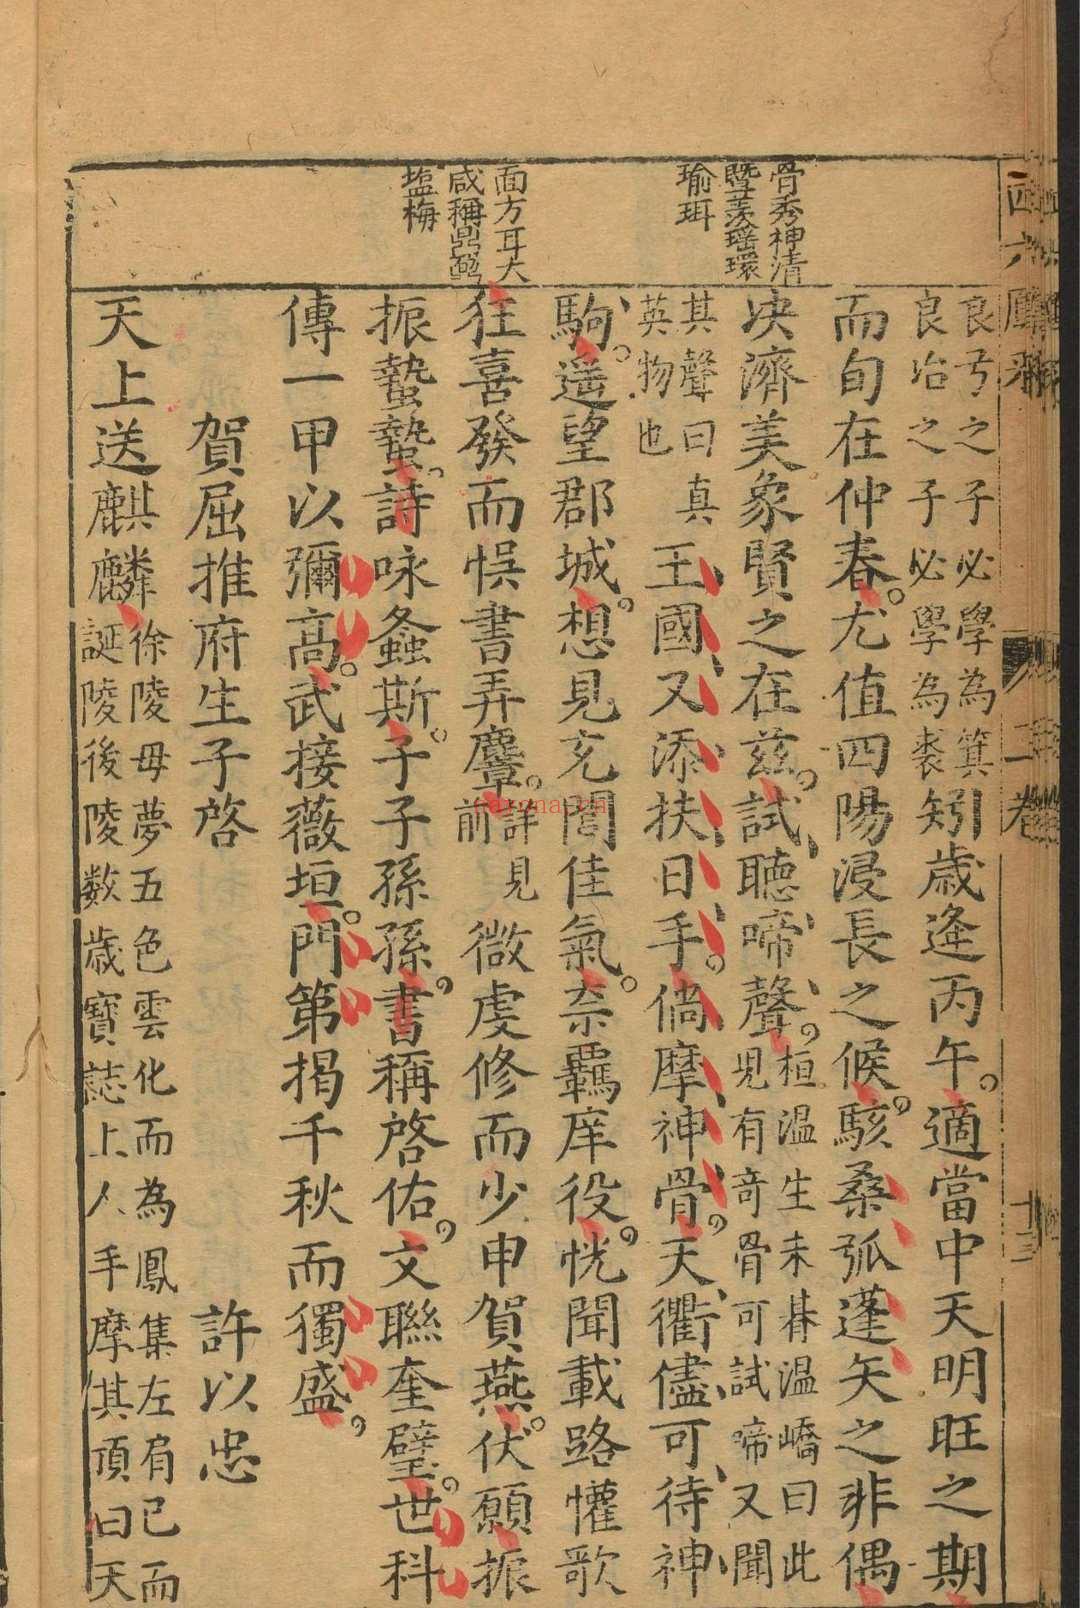 骨秀神清
暨羡瑶環
瑜珥
面方耳大
咸稱鼎鼐
塩梅
良弓之子必學為箕
良冶之子必學為裘
矧歲逢丙午適當中天明旺之期
而旬在仲春尤值四陽浸長之候駭桑弧蓬矢之非偶
决濟美象賢之在茲試聽啼聲
桓温生未朞温嶠曰此
児有竒骨可試啼又聞
其聲曰真
英物也
王國又添扶日手倘摩神骨天衢儘可待神
駒遥望郡城想見充閭佳氣奈羈庠役恍聞載路懽歌
狂喜發而悮書弄麞
詳見
前
微虔修而少申賀燕伏願振
振蟄蟄詩咏螽斯子子孫孫書稱啓佑文聯奎璧世科
傳一甲以彌高武接薇垣門第揭千秋而獨盛
賀屈推府生子啓
許以忠
天上送麒麟
徐陵母夢五色雲化而為鳳集左肩已而
誕陵後陵数歲寶誌上人手摩其頂曰天